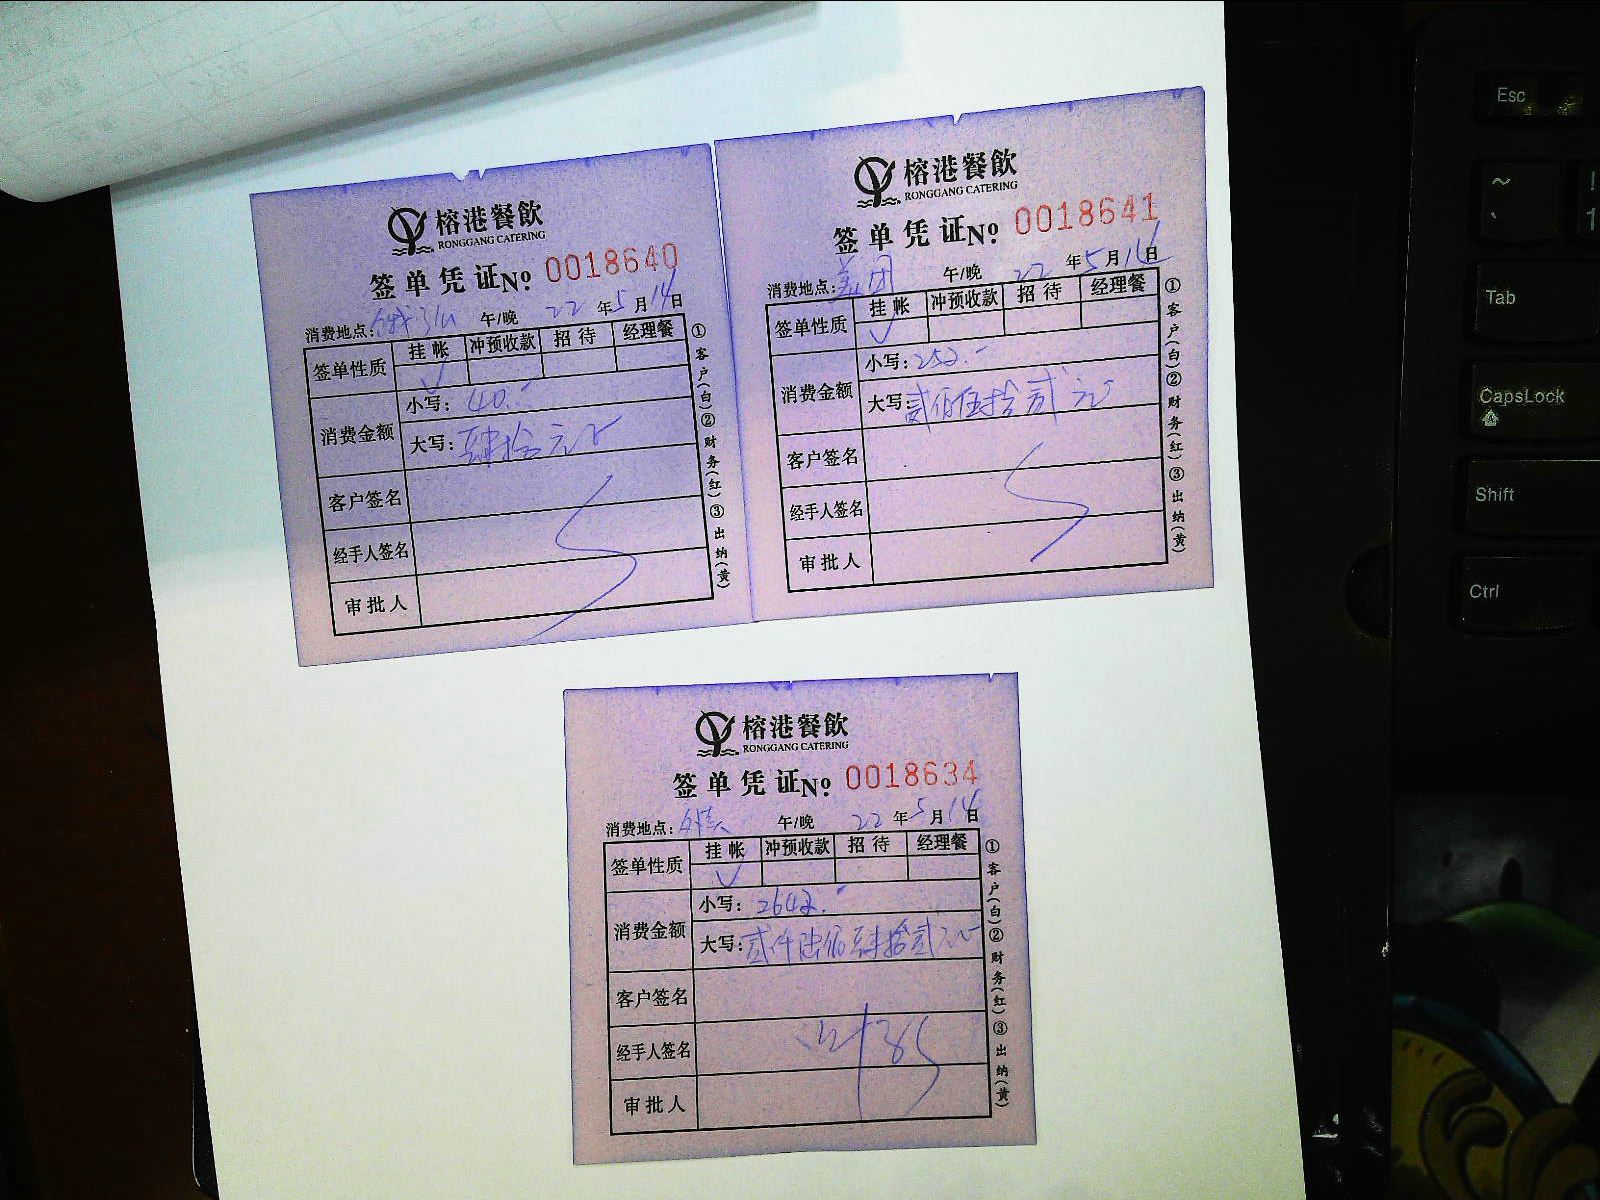 榕港餐飲
RONGGANG CATERING
签单凭证No 0018640
消费地点: 午/晚 22年5月14日
签单性质 挂帐 冲预收款 招待 经理餐
✓
消费金额 小写: 40.-
大写: 肆拾元
客户签名
经手人签名
审批人
①客户(白)②财务(红)③出纳(黄)
榕港餐飲
RONGGANG CATERING
签单凭证No 0018641
消费地点: 美团 午/晚 22年5月14日
签单性质 挂帐 冲预收款 招待 经理餐
✓
消费金额 小写: 252.-
大写: 贰佰伍拾贰元
客户签名
经手人签名
审批人
①客户(白)②财务(红)③出纳(黄)
榕港餐飲
RONGGANG CATERING
签单凭证No 0018634
消费地点: 午/晚 22年5月14日
签单性质 挂帐 冲预收款 招待 经理餐
✓
消费金额 小写: 2642.-
大写: 贰仟陆佰肆拾贰元
客户签名
经手人签名
审批人
①客户(白)②财务(红)③出纳(黄)
Esc
~
`
!
1
Tab
CapsLock
Shift
Ctrl